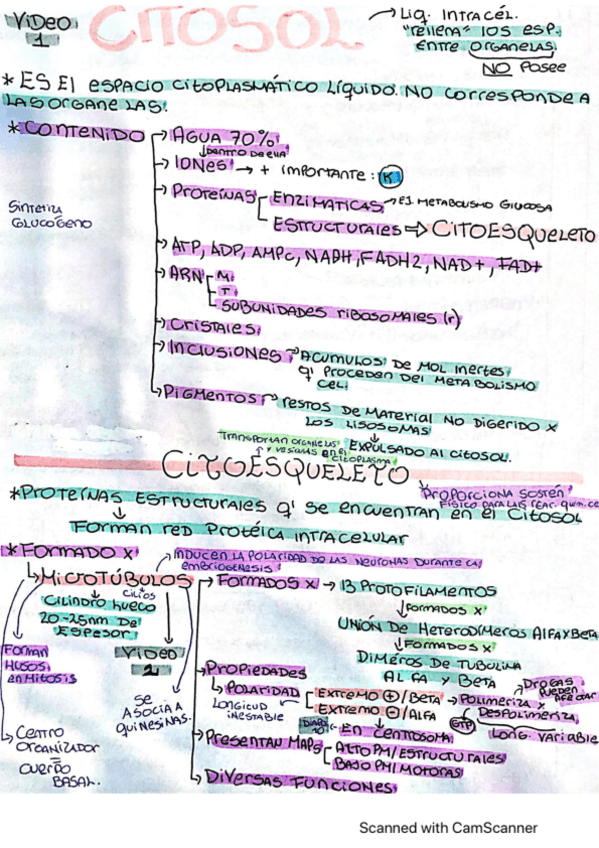 Video 1
CITOSOL
→ Liq. INTRACÉL.
"rellena" los esp.
entre organelas.
NO Posee
* ES El espacio citoplasmático líquido. NO corresponde a
las organelas.
* CONTENIDO → AGUA 70%
↓ Dentro de ella
→ IONES → + importante: K
→ Proteínas
ENZIMATICAS → EJ. METABOLISMO GLUCOSA
ESTRUCTURALES ⇒ CITOESQUELETO
Sintetiza
GLUCÓGENO
→ ATP, ADP, AMPc, NADH, FADH2, NAD+, FAD+
→ ARN
M.
T.
SUBUNIDADES ribosomales (r)
→ Cristales
→ INCLUSIONES → ACUMULOS DE MOL INERTES
q' PROCEDEN DEL METABOLISMO
CEL.
→ PIGMENTOS → RESTOS DE MATERIAL NO DIGERIDO X
LOS LISOSOMAS
↓
EXPULSADO Al CITOSOL.
Transportan organelas
y vesículas en el
citoplasma
CITOESQUELETO
Proporciona sostén
FÍSICO PARA LAS reac. químicas
* Proteínas ESTRUCTURALES q' se encuentran en el Citosol
↓
Forman red Protéica intracelular
* FORMADO X
INDUCEN LA POLARIDAD DE LAS NEURONAS DURANTE LA
embriogénesis
→ MICROTÚBULOS
Cilios
↓
Cilindro hueco
20-25nm De
ESPESOR.
Forman
Husos
en Mitosis
VIDEO
2
Se
ASOCIA A
QUINESINAS.
→ Centro
Organizador
=
cuerpo
BASAL.
→ FORMADOS X → 13 PROTOFILAMENTOS
↓ FORMADOS X
UNIÓN DE Heterodímeros ALFA y BETA
↓ FORMADOS X
DÍMEROS DE TUBULINA
ALFA y BETA
→ Propiedades
→ POLARIDAD
EXTREMO ⊕/BETA → POLIMERIZA X
EXTREMO ⊖/ALFA
DESPOLIMERIZA
GTP
Drogas
pueden
afectar
Long. Variable
Longitud
inestable
→ En CENTROSOMA.
→ PRESENTAN MAPs
ALTO PM/ESTRUCTURALES
BAJO PM/MOTORAS
→ Diversas FUNCIONES
Scanned with CamScanner